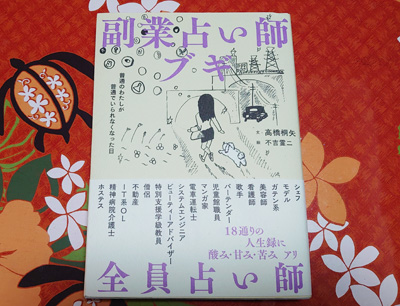 副業占い師
ブギ
普通のわたしが
普通でいられなくなった日
文 高橋桐矢
絵 不吉霊二
シェフ
モデル
ガテン系
美容師
看護師
歌手
バーテンダー
児童館職員
マンガ家
電車運転士
システムエンジニア
ビューティーアドバイザー
特別支援学級教員
僧侶
不動産
IT系OL
精神病院介護士
ホステス
18通りの
人生録に
酸み・甘み・苦み アリ
全員占い師